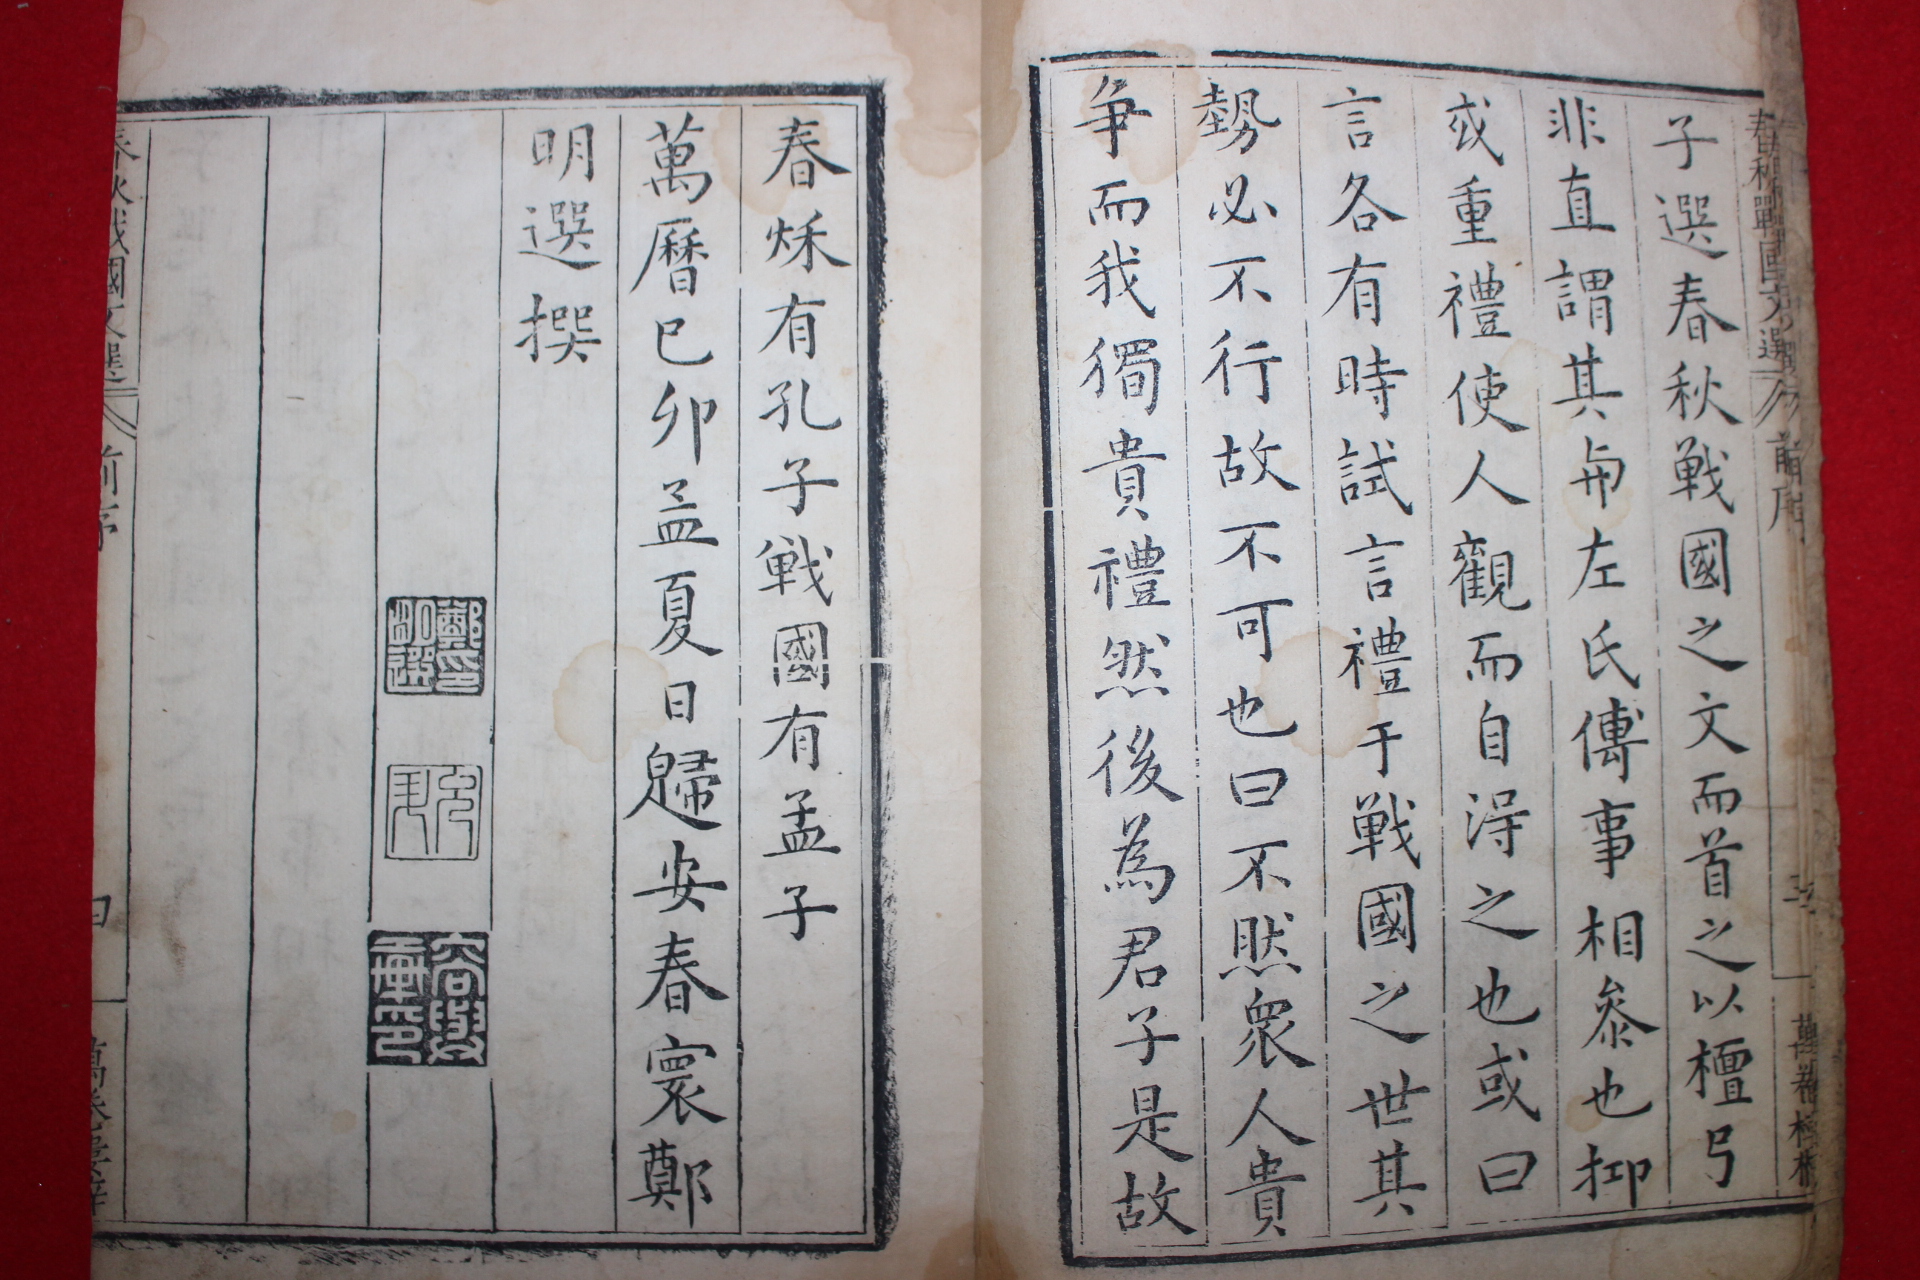 子選春秋戦國之文而首之以檀弓
非直謂其與左氏傳事相叅也抑
或重禮使人觀而自淂之也或曰
言各有時試言禮于戦國之世其
勢必不行故不可也曰不然衆人貴
争而我獨貴禮然後為君子是故
春秌有孔子戦國有孟子
萬曆己卯孟夏日歸安春寰鄭
明選撰
春秋戰國文選
前序
春秋戰國文選
前序
四